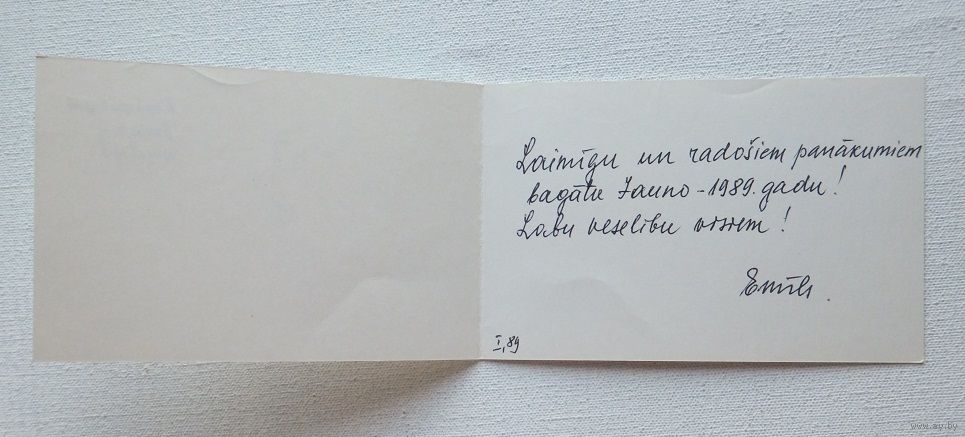 Laimīgu un radošiem panākumiem
bagātu Jauno - 1989. gadu!
Labu veselību visiem!
Emīls.
I, 89
www.ay.by